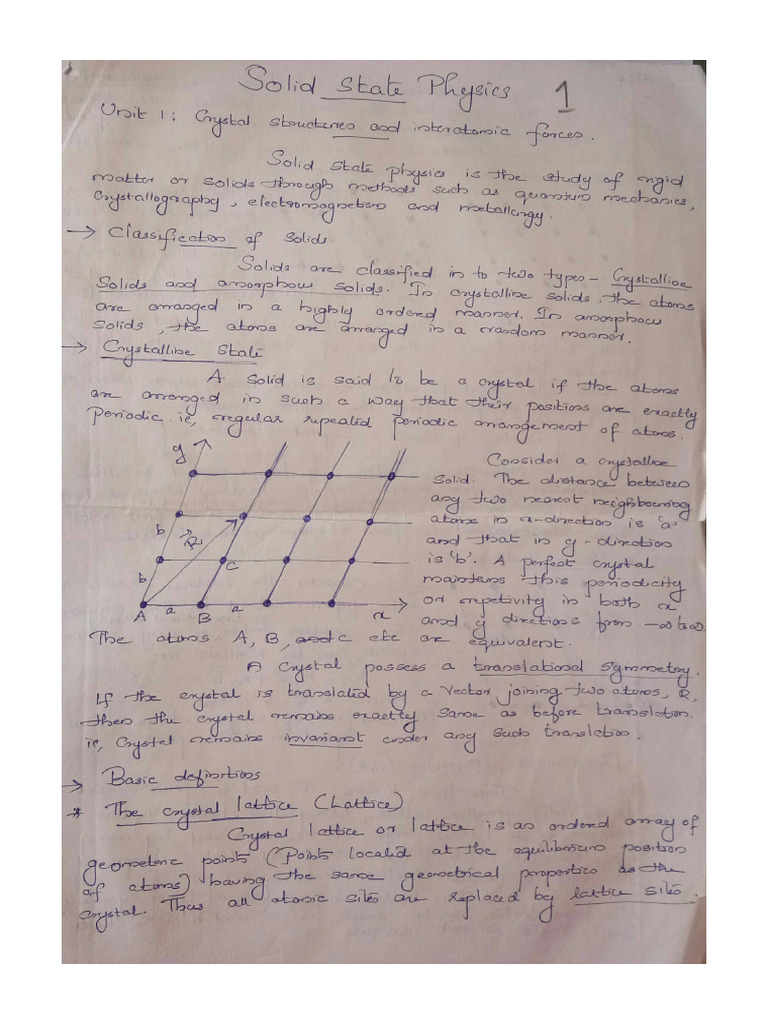 Solid State Physics 1
Unit 1: Crystal structures and interatomic forces.
Solid state physics is the study of rigid
matter or solids through methods such as quantum mechanics,
Crystallography, electromagnetism and metallurgy.
→ Classification of Solids
Solids are classified in to two types - Crystalline
Solids and amorphous solids. In crystalline solids, the atoms
are arranged in a highly ordered manner. In amorphous
solids, the atoms are arranged in a random manner.
→ Crystalline State
A solid is said to be a crystal if the atoms
are arranged in such a way that their positions are exactly
Periodic ie, regular repeated periodic arrangement of atoms.
Consider a crystalline
solid. The distance between
any two nearest neighbouring
atoms in x-direction is 'a'
and that in y-direction
is 'b'. A perfect crystal
maintains this periodicity
or repetivity in both x
and y directions from -∞ to ∞.
y
b
R
b
C
A a B a x
The atoms A, B, and c etc are equivalent.
A crystal possess a translational symmetry.
If the crystal is translated by a vector joining two atoms, R,
then the crystal remains exactly same as before translation.
ie, Crystal remains invariant under any such translation.
→ Basic definitions
* The crystal lattice (Lattice)
Crystal lattice or lattice is an ordered array of
geometric points (Points located at the equilibrium position
of atoms) having the same geometrical properties as the
crystal. Thus all atomic sites are replaced by lattice sites.